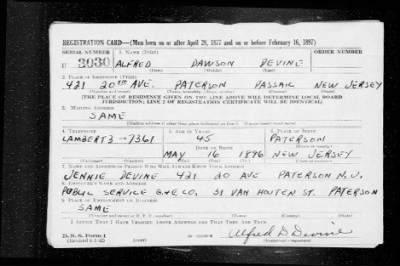 REGISTRATION CARD—(Men born on or after April 28, 1877 and on or before February 16, 1897)
SERIAL NUMBER 1. NAME (Print) ORDER NUMBER
U 3030 ALFRED DAWSON DEVINE
(First) (Middle) (Last)
2. PLACE OF RESIDENCE (Print)
421 20TH AVE. PATERSON PASSAIC NEW JERSEY
(Number and street) (Town, township, village, or city) (County) (State)
[THE PLACE OF RESIDENCE GIVEN ON THE LINE ABOVE WILL DETERMINE LOCAL BOARD
JURISDICTION; LINE 2 OF REGISTRATION CERTIFICATE WILL BE IDENTICAL]
3. MAILING ADDRESS
SAME
4. TELEPHONE 5. AGE IN YEARS 6. PLACE OF BIRTH
LAMBERT 3-7361 45 PATERSON
DATE OF BIRTH
MAY 16 1896 NEW JERSEY
7. NAME AND ADDRESS OF PERSON WHO WILL ALWAYS KNOW YOUR ADDRESS
JENNIE DEVINE 421 20 AVE PATERSON N.J.
8. EMPLOYER'S NAME AND ADDRESS
PUBLIC SERVICE G.&E CO. 31 VAN HOUTEN ST. PATERSON
9. PLACE OF EMPLOYMENT OR BUSINESS
SAME
I AFFIRM THAT I HAVE VERIFIED ABOVE ANSWERS AND THAT THEY ARE TRUE.
D. S. S. Form 1 Alfred D Devine